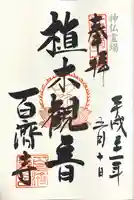 神仏霊場
奉拝
植木観音
百済寺
平成三十一年
三月十日